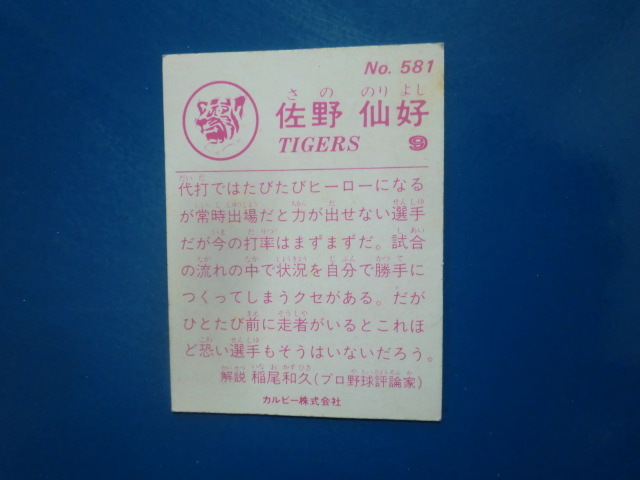 No. 581
さの のりよし
佐野 仙好
TIGERS 9
代打ではたびたびヒーローになる
が常時出場だと力が出せない選手
だが今の打率はまずまずだ。試合
の流れの中で状況を自分で勝手に
つくってしまうクセがある。だが
ひとたび前に走者がいるとこれほ
ど恐い選手もそうはいないだろう。
解説 稲尾和久(プロ野球評論家)
カルビー株式会社